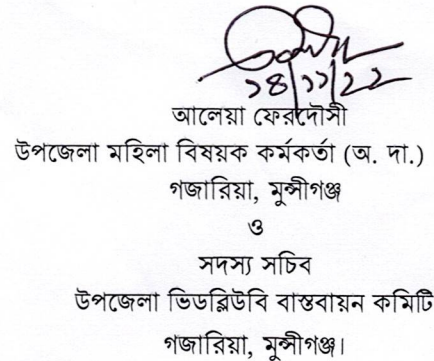 ১৪/১১/২২
আলেয়া ফেরদৌসী
উপজেলা মহিলা বিষয়ক কর্মকর্তা (অ. দা.)
গজারিয়া, মুন্সীগঞ্জ
ও
সদস্য সচিব
উপজেলা ভিডব্লিউবি বাস্তবায়ন কমিটি
গজারিয়া, মুন্সীগঞ্জ।